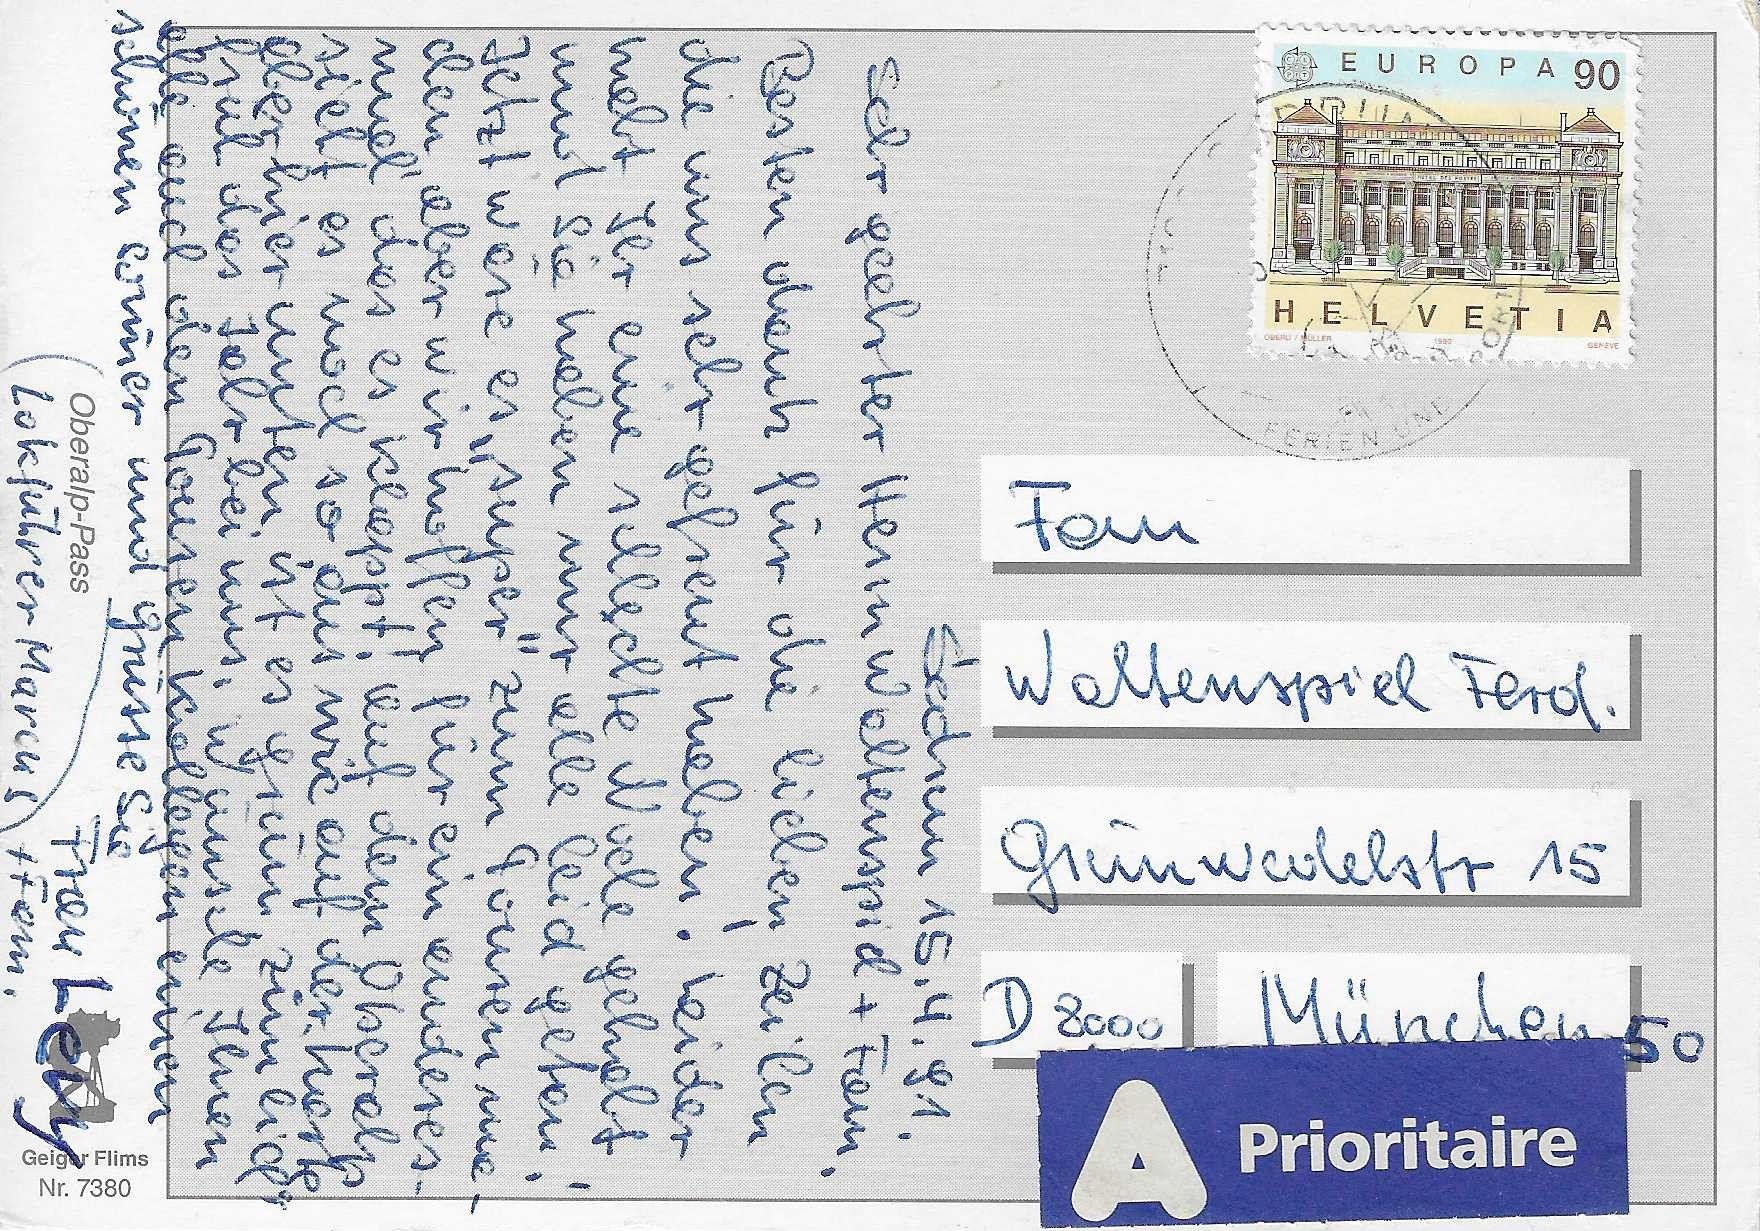 Sedrun 15.4.91
Sehr geehrter Herrn Waltenspiel + Fam.
Besten dank für die lieben Zeilen
die uns sehr gefreut haben! leider
habt Ihr eine schlechte Nole gehabt
und Sie haben uns alle leid getan!
Jetzt wäre es "super" zum Tousen ma-
chen aber wir hoffen für ein anderes-
mal das es klappt! auf dem Oberalp
sieht es noch so aus wie auf der Karte
aber hier unten ist es grün zimlich
früh das Jahr bei uns, wünsche Ihnen
alle auch den Tousen Kollegen einen
schönen Somer und grüsse Sie
Frau Levy
(Lokführer Marcus) + Fam.
Oberalp-Pass
Geiger Flims
Nr. 7380
EUROPA 90
HOTEL DES POSTES
HELVETIA
OBERLI / MÜLLER 1990 GENEVE
FERIEN UND
SPORT
Fam
Waltenspiel Ferd.
Grünwedelstr 15
D 8000 München 50
A Prioritaire